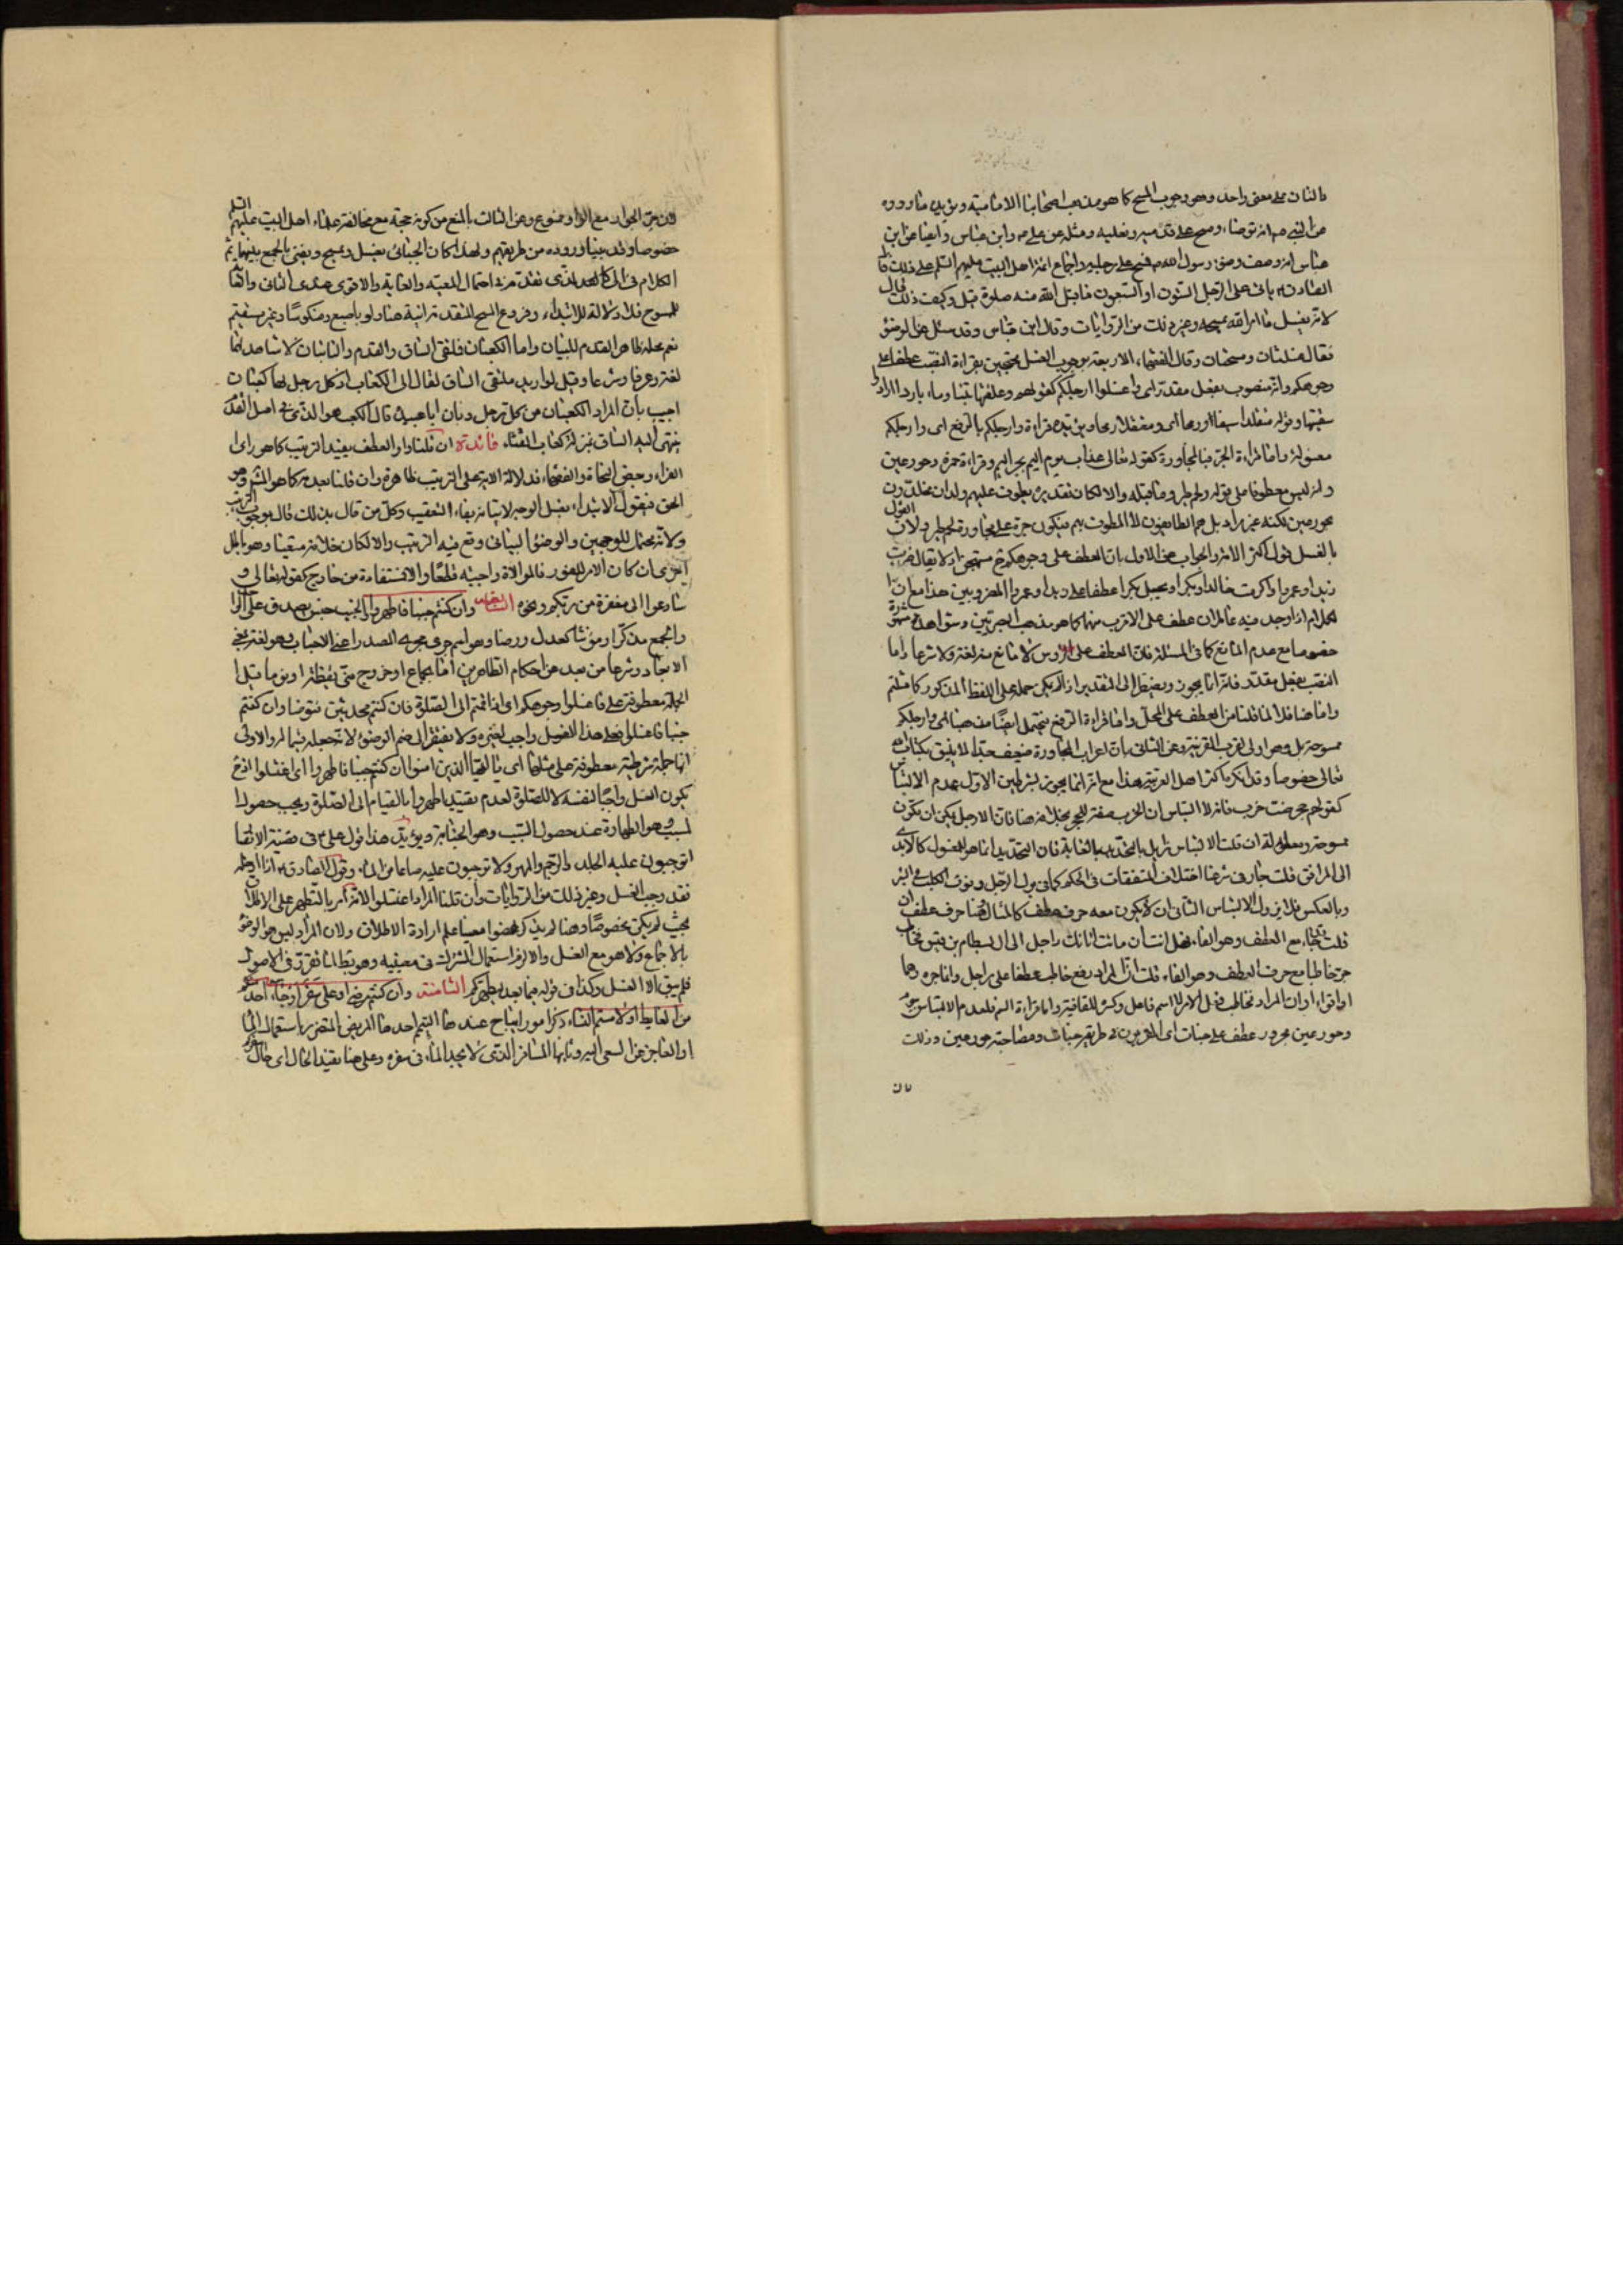 فالقراءتان على معنى واحد وهو وجوب المسح كما هو مذهب اصحابنا الامامية ويؤيده ما رووه
عن النبي ص انه توضاء ومسح على قدميه ونعليه ومثله عن علي ع وابن عباس وايضا عن ابن
عباس انه وصف وضوء رسول الله ص فمسح على رجليه واجماع ائمة اهل البيت عليهم السلم على ذلك قال
الصادق ع ياتي على الرجل الستون او السبعون ما قبل الله منه صلوة قيل وكيف ذلك قال
لانه يغسل ما امر الله بمسحه وغير ذلك من الروايات وقال ابن عباس وقد سئل عن الوضوء
فقال غسلتان ومسحتان وقال الفقهاء الاربعة بوجوب الغسل محتجين بقراءة النصب عطفا على
وجوهكم او انه منصوب بفعل مقدر اى واغسلوا ارجلكم كقولهم وعلفتها تبنا وماء باردا اراد و
سقيتها وقوله متقلدا سيفا ورمحا اى ومعتقلا رمحا وبين قراءة وارجلكم بالرفع اى وارجلكم
مغسولة واما قراءة الجر فبالمجاورة كقوله تعالى عذاب يوم اليم بجر اليم وقراءة حمزة وحور عين
فانه ليس معطوفا على قوله ولحم طير وما قبله والا لكان تقديره يطوف عليهم ولدان مخلدون
بحور عين لكنه غير مراد بل هم الطائفون لا المطوف بهم فيكون جره على مجاورة لحم طير ولان القول
بالغسل قول اكثر الامة والجواب عن الاول بان العطف على وجوهكم مستهجن اذ لا يقال ضربت
زيدا وعمروا واكرمت خالدا وبكرا ويجعل بكرا عطفا على زيدا وعمروا المضروبين هذا مع ان
الكلام اذا وجد فيه عاملان عطف على الاقرب منهما كما هو مذهب البصريين وشواهده مشهورة
خصوصا مع عدم المانع كما فى المسئلة فان العطف على الرؤس لا مانع منه لغة ولا شرعا واما
النصب بفعل مقدر فانه انما يجوز ويضطر الى التقدير اذا لم يمكن حمله على اللفظ المذكور كما مثلتم
واما هنا فلا لما قلنا من العطف على المحل واما قراءة الرفع فيحتمل ايضا منه هنا اى وارجلكم
ممسوحة بل هو اولى لقرب القرينة وعن الثانى بان اعراب المجاورة ضعيف جدا لا يليق بكتاب الله
تعالى خصوصا وقد انكره اكثر اهل العربية هذا مع انه انما يجوز بشرطين الاول عدم الالتباس
كقولهم جحر ضب خرب فانه لا التباس ان الخرب صفة للجحر بخلافه هنا فان الارجل يمكن ان تكون
ممسوحة ومغسولة ان قلت الالتباس زايل بالتحديد بالغاية فان التحديد انما هو للمغسول كالايدى
الى المرافق قلت جاز فى شرعنا اختلاف المتفقات فى الحكم
وبالعكس فلا يزول الالتباس الثانى ان لا يكون معه حرف عطف كالمثال وهنا حرف عطف ان
قلت جاء مع العطف وهو الفاء فهل انت ان ماتت اتانك راحل الى ال بسطام بن قيس فخاطب
جر خاطبا مع حرف العطف وهو الفاء قلت ان المراد رفع خاطب عطفا على راحل وانما جره وهما
او اقواء او ان المراد فخاطب فعل الامر لا اسم فاعل وكسر للقافية واما قراءة الـ فلعدم الالتباس
وحور عين مجرور عطف على جنات اى المقربون فى جنات ومصاحبة حور عين وذلك
فان
فان جر الجوار مع الواو ممنوع وعن الثالث بالمنع من كونه حجة مع مخالفة علماء اهل البيت عليهم السلم
خصوصا وقد بينا وروده من طريقهم ولهذا كان الجبائى يغسل ويمسح ويفتى بالجمع بينهما ثم
الكلام فى الى كالكلام الذى تقدم من احتمال المعية والغاية والاقوى عندى الثانى وانها
للممسوح فلا دلالة للابتداء وفروع المسح المتقدمة اتية هنا ولو باصبع ومنكوسا وغير مستقيم
نعم محله ظاهر القدم للبيان واما الكعبان فملتقى الساق والقدم والناتيان لا شاهد لهما
لغة وعرفا وشرعا وقيل لو اريد ملتقى الساق لقال الى الكعاب اذ كل رجل لها كعبان
اجيب بان المراد الكعبان من كل رجل وبان ابا عبيدة قال الكعب هو الذى فى اصل القدم
ينتهى اليه الساق بمنزلة كعاب القناء فائدة ان قلنا واو العطف يفيد الترتيب كما هو راى
الفراء وبعض النحاة والفقهاء فدلالة الاية على الترتيب ظاهرة وان قلنا بعدمه كما هو المشهور وهو
الحق فنقول الابتداء بغسل الوجه لاتيانه بفاء التعقيب وكل من قال بذلك قال بوجوب الترتيب
ولانه محتمل للوجهين والوضوء البيانى وقع فيه الترتيب والا لكان خلافه متعينا وهو باطل
اخرى ان كان الامر للفور فالموالاة واجبة قطعا والا فتستفاد من خارج كقوله تعالى و
سارعوا الى مغفرة من ربكم ونحوه السابعة وان كنتم جنبا فاطهروا الجنب جنس يصدق على الواحد
والجمع مذكرا ومؤنثا كعدل ورضا وهو اسم جرى مجرى المصدر اعنى الاجناب وهو لغة بمعنى
الابعاد وشرعا من بعد عن احكام الطاهرين اما بجماع او خروج منى يقظة او نوما قيل
الجملة معطوفة على فاغسلوا وجوهكم اى اذا قمتم الى الصلوة فان كنتم محدثين فتوضأوا وان كنتم
جنبا فاغتسلوا فعلى هذا الغسل واجب لغيره ولا يفتقر الى ضم الوضوء لانه جعله قسيما له والاولى
انها جملة شرطية معطوفة على مثلها اى يا ايها الذين امنوا ان كنتم جنبا فاطهروا اى اغتسلوا اذن
يكون الغسل واجبا لنفسه لا للصلوة لعدم تقييد اطهروا بالقيام الى الصلوة ويجب حصول
المسبب وهو الطهارة عند حصول السبب وهو الجنابة ويؤيد هذا قول على ع فى قضية الانصار
اتوجبون عليه الجلد والرجم والمهر ولا توجبون عليه صاعا من الماء وقول الصادق ع اذا ادخله
فقد وجب الغسل وغير ذلك من الروايات وان قلنا المراد اغتسلوا لانه امر بالتطهر على الاطلاق
بحيث لم يكن مخصوصا وهنا لم يذكر عضوا معينا علم ارادة الاطلاق ولان المراد ليس هو الوضوء
بالاجماع ولا هو مع الغسل والا لزم استعمال المشترك فى معنييه وهو بط لما تقرر فى الاصول
فلم يبق الا الغسل وكذا فى قوله فيما بعد ليطهركم الثامنة وان كنتم مرضى او على سفر او جاء احد منكم
من الغايط او لامستم النساء ذكر امور ايباح عندها التيمم احدها المريض المتضرر باستعمال الماء
او العاجز عن السعى اليه وثانيها المسافر الذى لا يجد الماء فى سفره وعلى هنا يفيد الحال اى حال